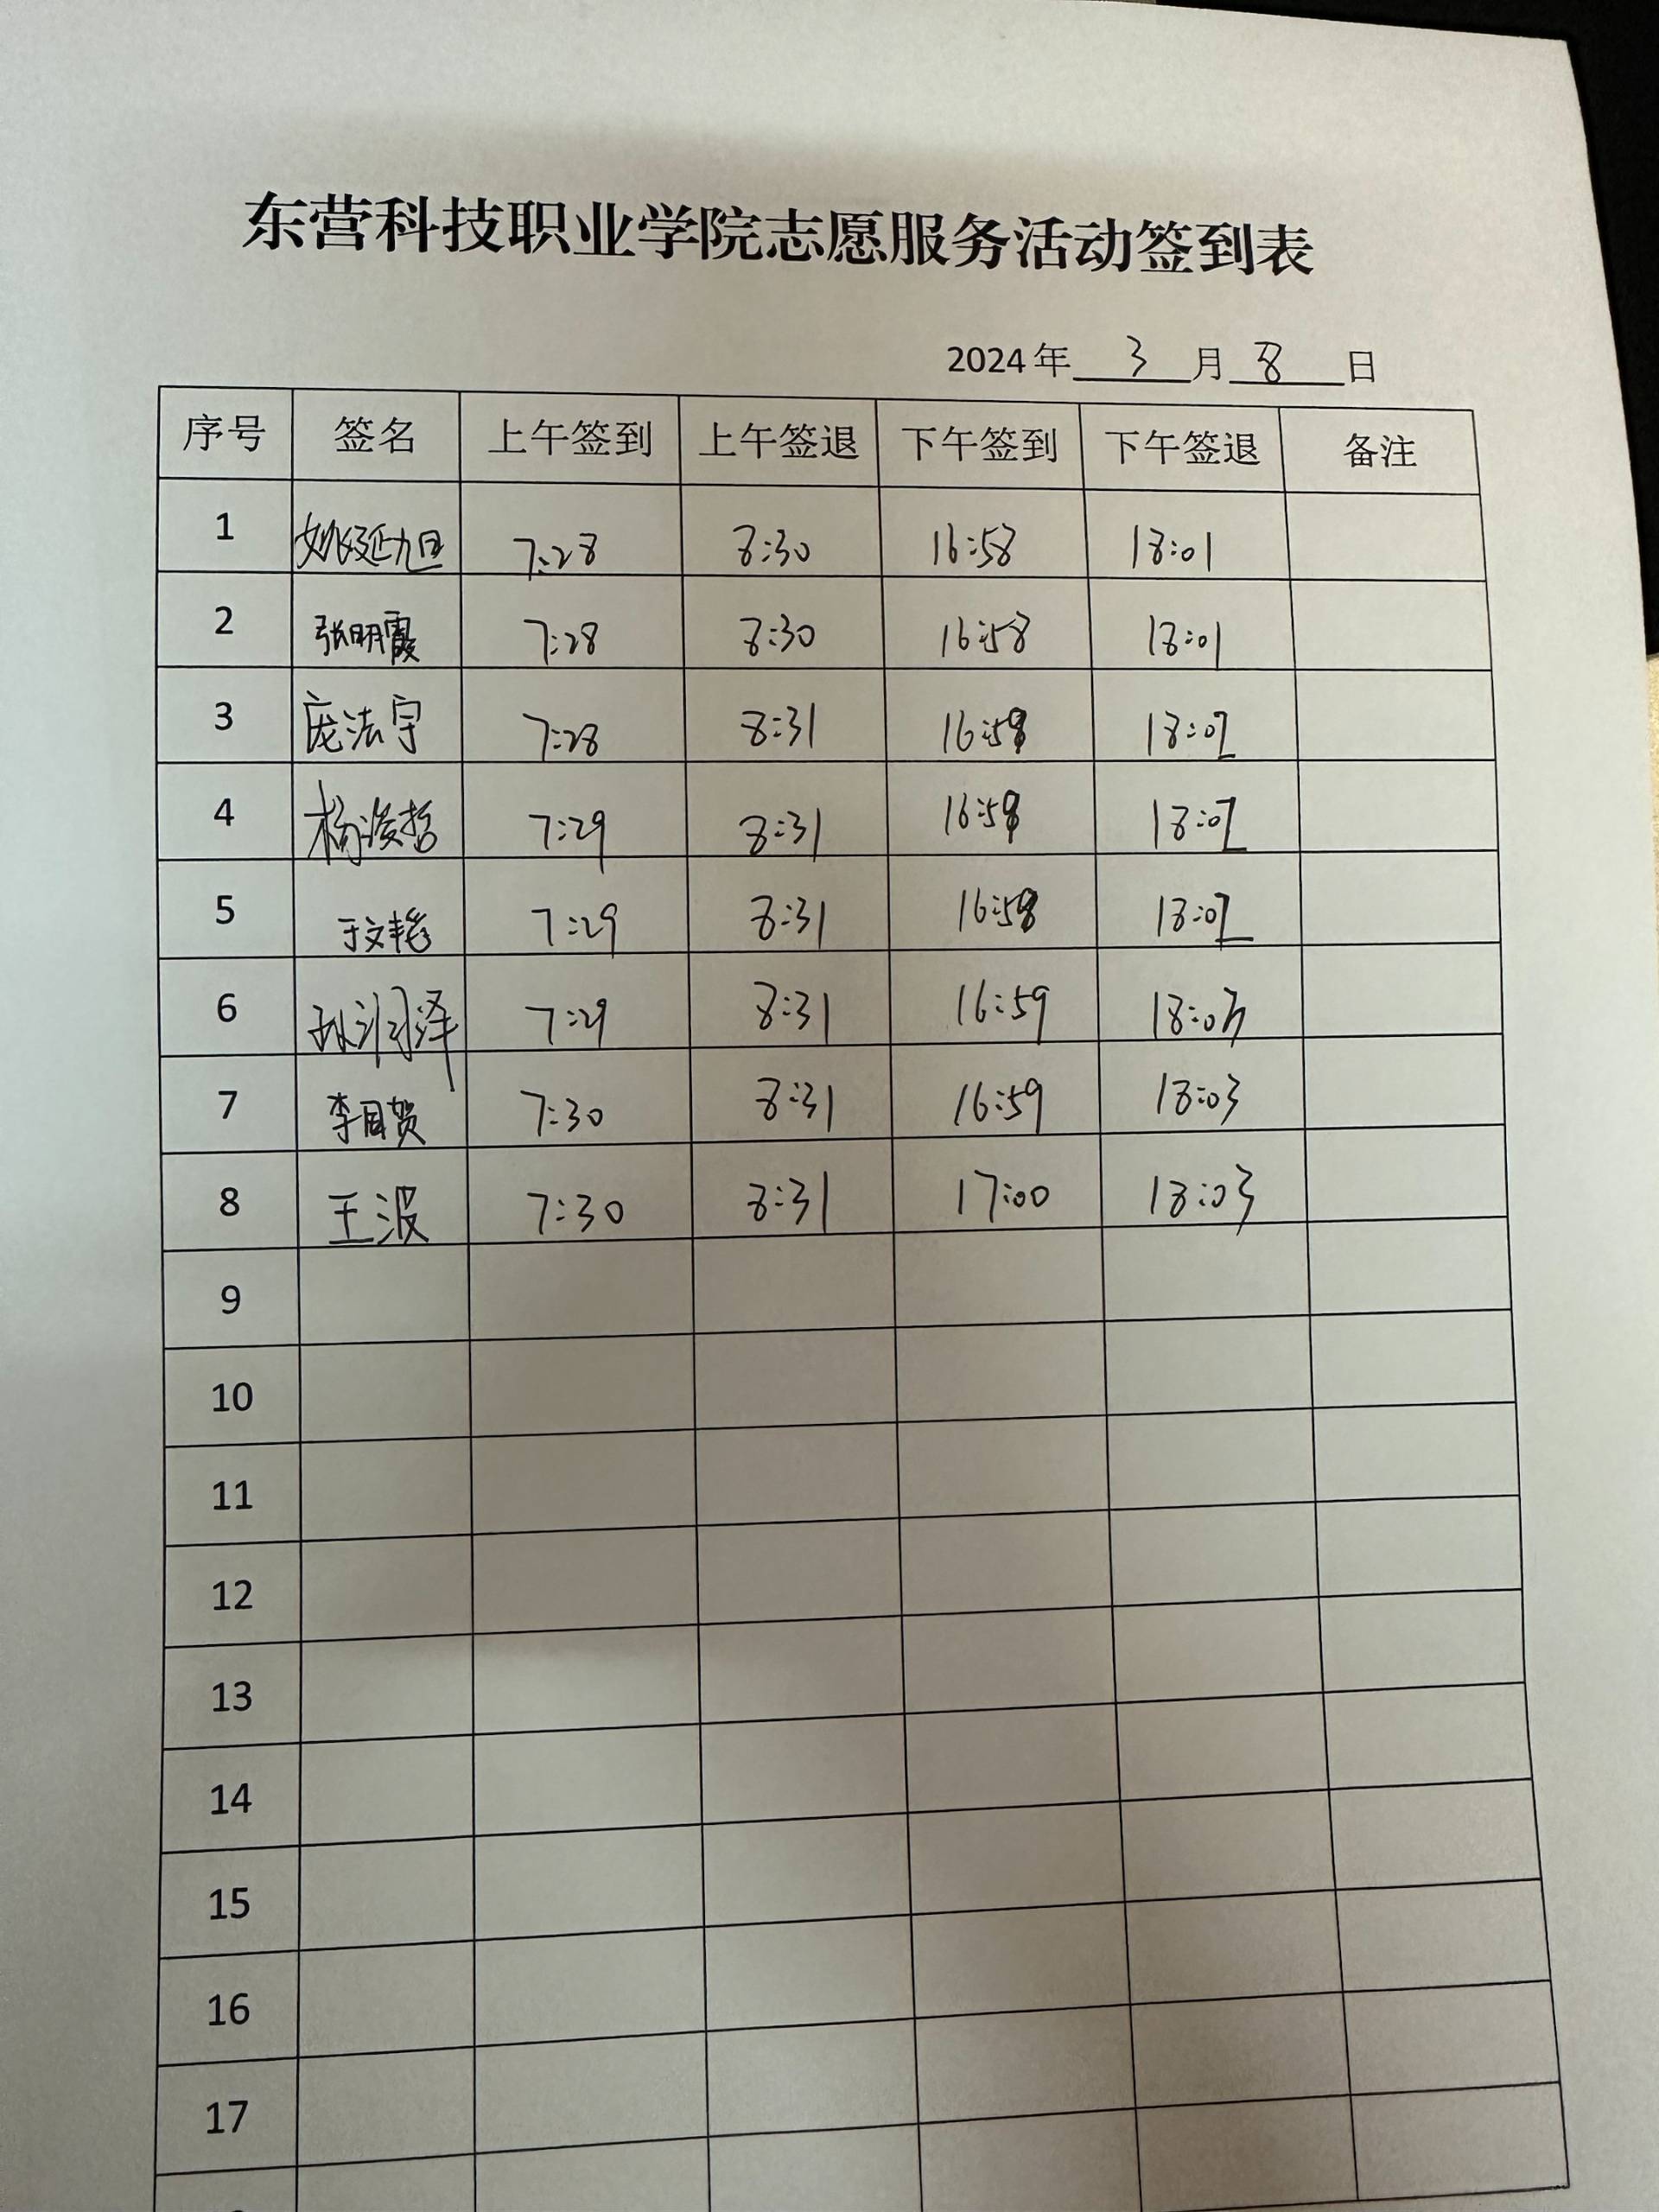 东营科技职业学院志愿服务活动签到表
2024年 3 月 8 日
序号 签名 上午签到 上午签退 下午签到 下午签退 备注
1 姚延旭 7:28 8:30 16:58 18:01
2 张明霞 7:28 8:30 16:58 18:01
3 庞法宇 7:28 8:31 16:58 18:02
4 杨浚哲 7:29 8:31 16:58 18:02
5 于文艳 7:29 8:31 16:58 18:02
6 孙润泽 7:29 8:31 16:59 18:03
7 李国贺 7:30 8:31 16:59 18:03
8 王波 7:30 8:31 17:00 18:03
9
10
11
12
13
14
15
16
17